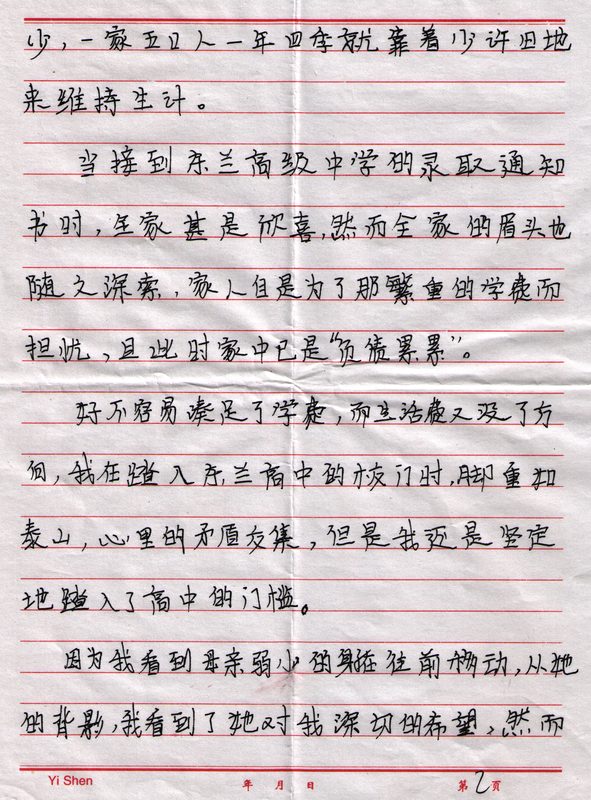 少，一家五口人一年四季就靠着少许田地
来维持生计。
当接到东兰高级中学的录取通知
书时，全家甚是欣喜，然而全家的眉头也
随之深索，家人自是为了那繁重的学费而
担忧，且此时家中已是“负债累累”。
好不容易凑足了学费，而生活费又没了方
向，我在踏入东兰高中的校门时，脚重如
泰山，心里的矛盾交集，但是我还是坚定
地踏入了高中的门槛。
因为我看到母亲弱小的身躯在往前移动，从她
的背影，我看到了她对我深切的希望，然而
Yi Shen
年 月 日
第2页